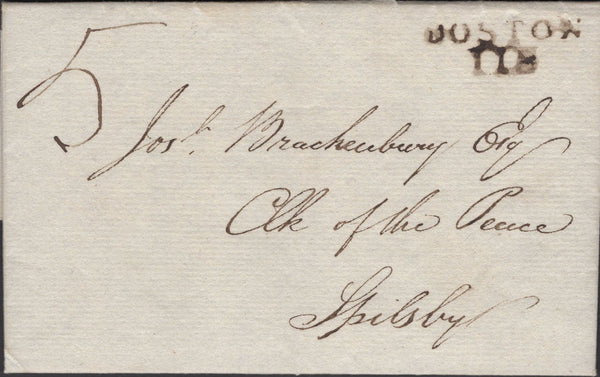 BOSTON
118
5
Josh. Brackenbury Esq
Clk of the Peace
Spilsby